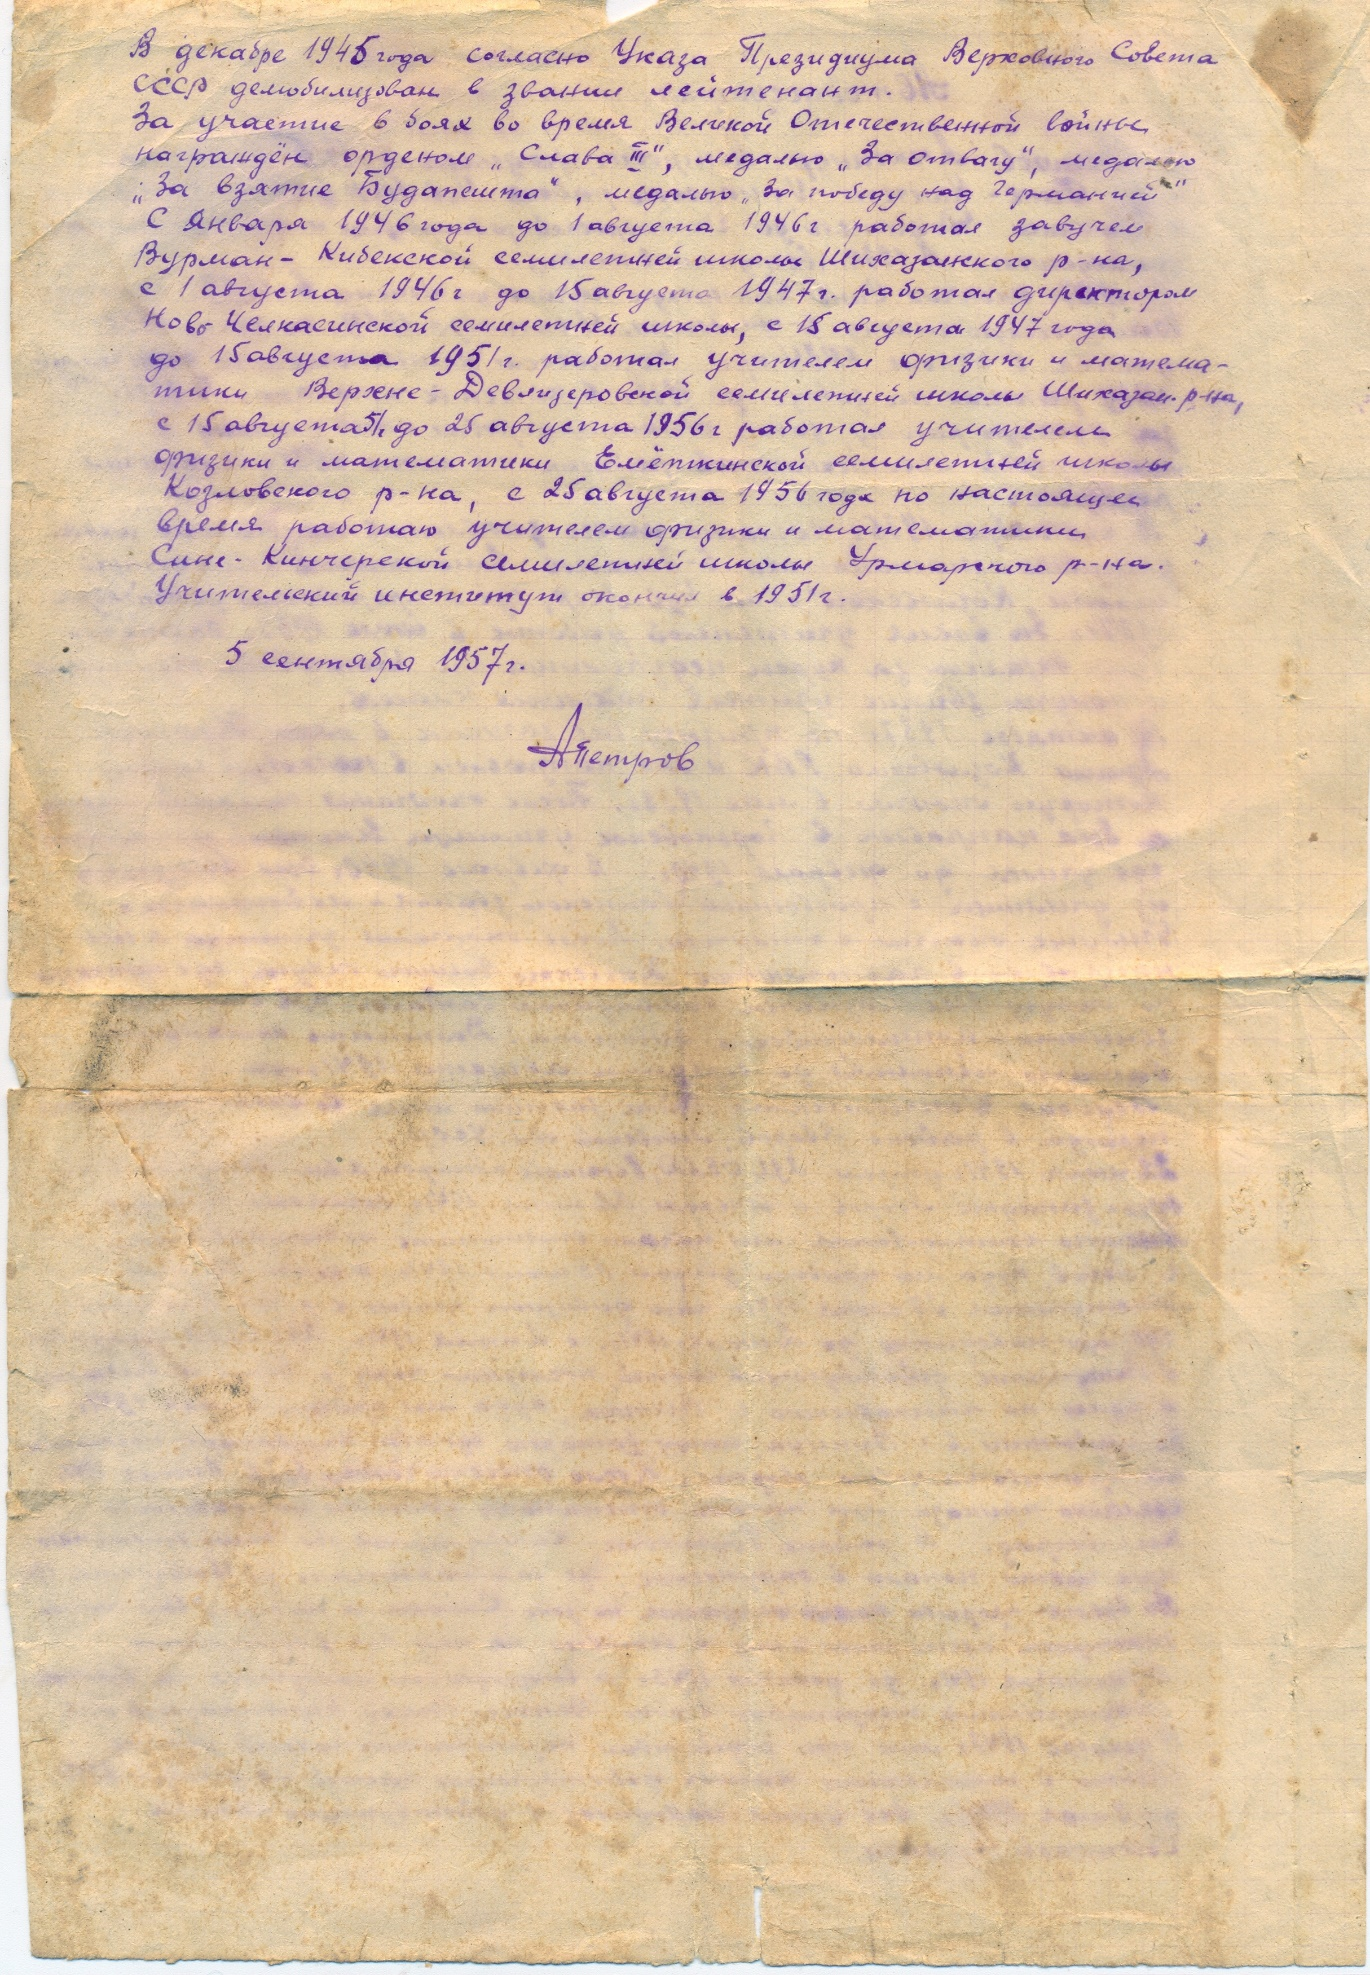 В декабре 1945 года согласно Указа Президиума Верховного Совета
СССР демобилизован в звании лейтенант.
За участие в боях во время Великой Отечественной войны
награждён орденом „Слава III", медалью „За отвагу", медалью
„За взятие Будапешта", медалью „За победу над Германией"
С Января 1946 года до 1 августа 1946 г работал завучем
Вурман-Кибекской семилетней школы Шихазанского р-на,
с 1 августа 1946 г до 15 августа 1947 г. работал директором
Ново Челкасинской семилетней школы, с 15 августа 1947 года
до 15 августа 1951 г. работал учителем физики и матема-
тики Верхне-Девлизеровской семилетней школы Шихазан. р-на,
с 15 августа 51 г до 25 августа 1956 г работал учителем
физики и математики Емёткинской семилетней школы
Козловского р-на, с 25 августа 1956 года по настоящее
время работаю учителем физики и математики
Сине-Кинчерской семилетней школы Урмарского р-на.
Учительский институт окончил в 1951 г.
5 сентября 1957 г.
АПетров